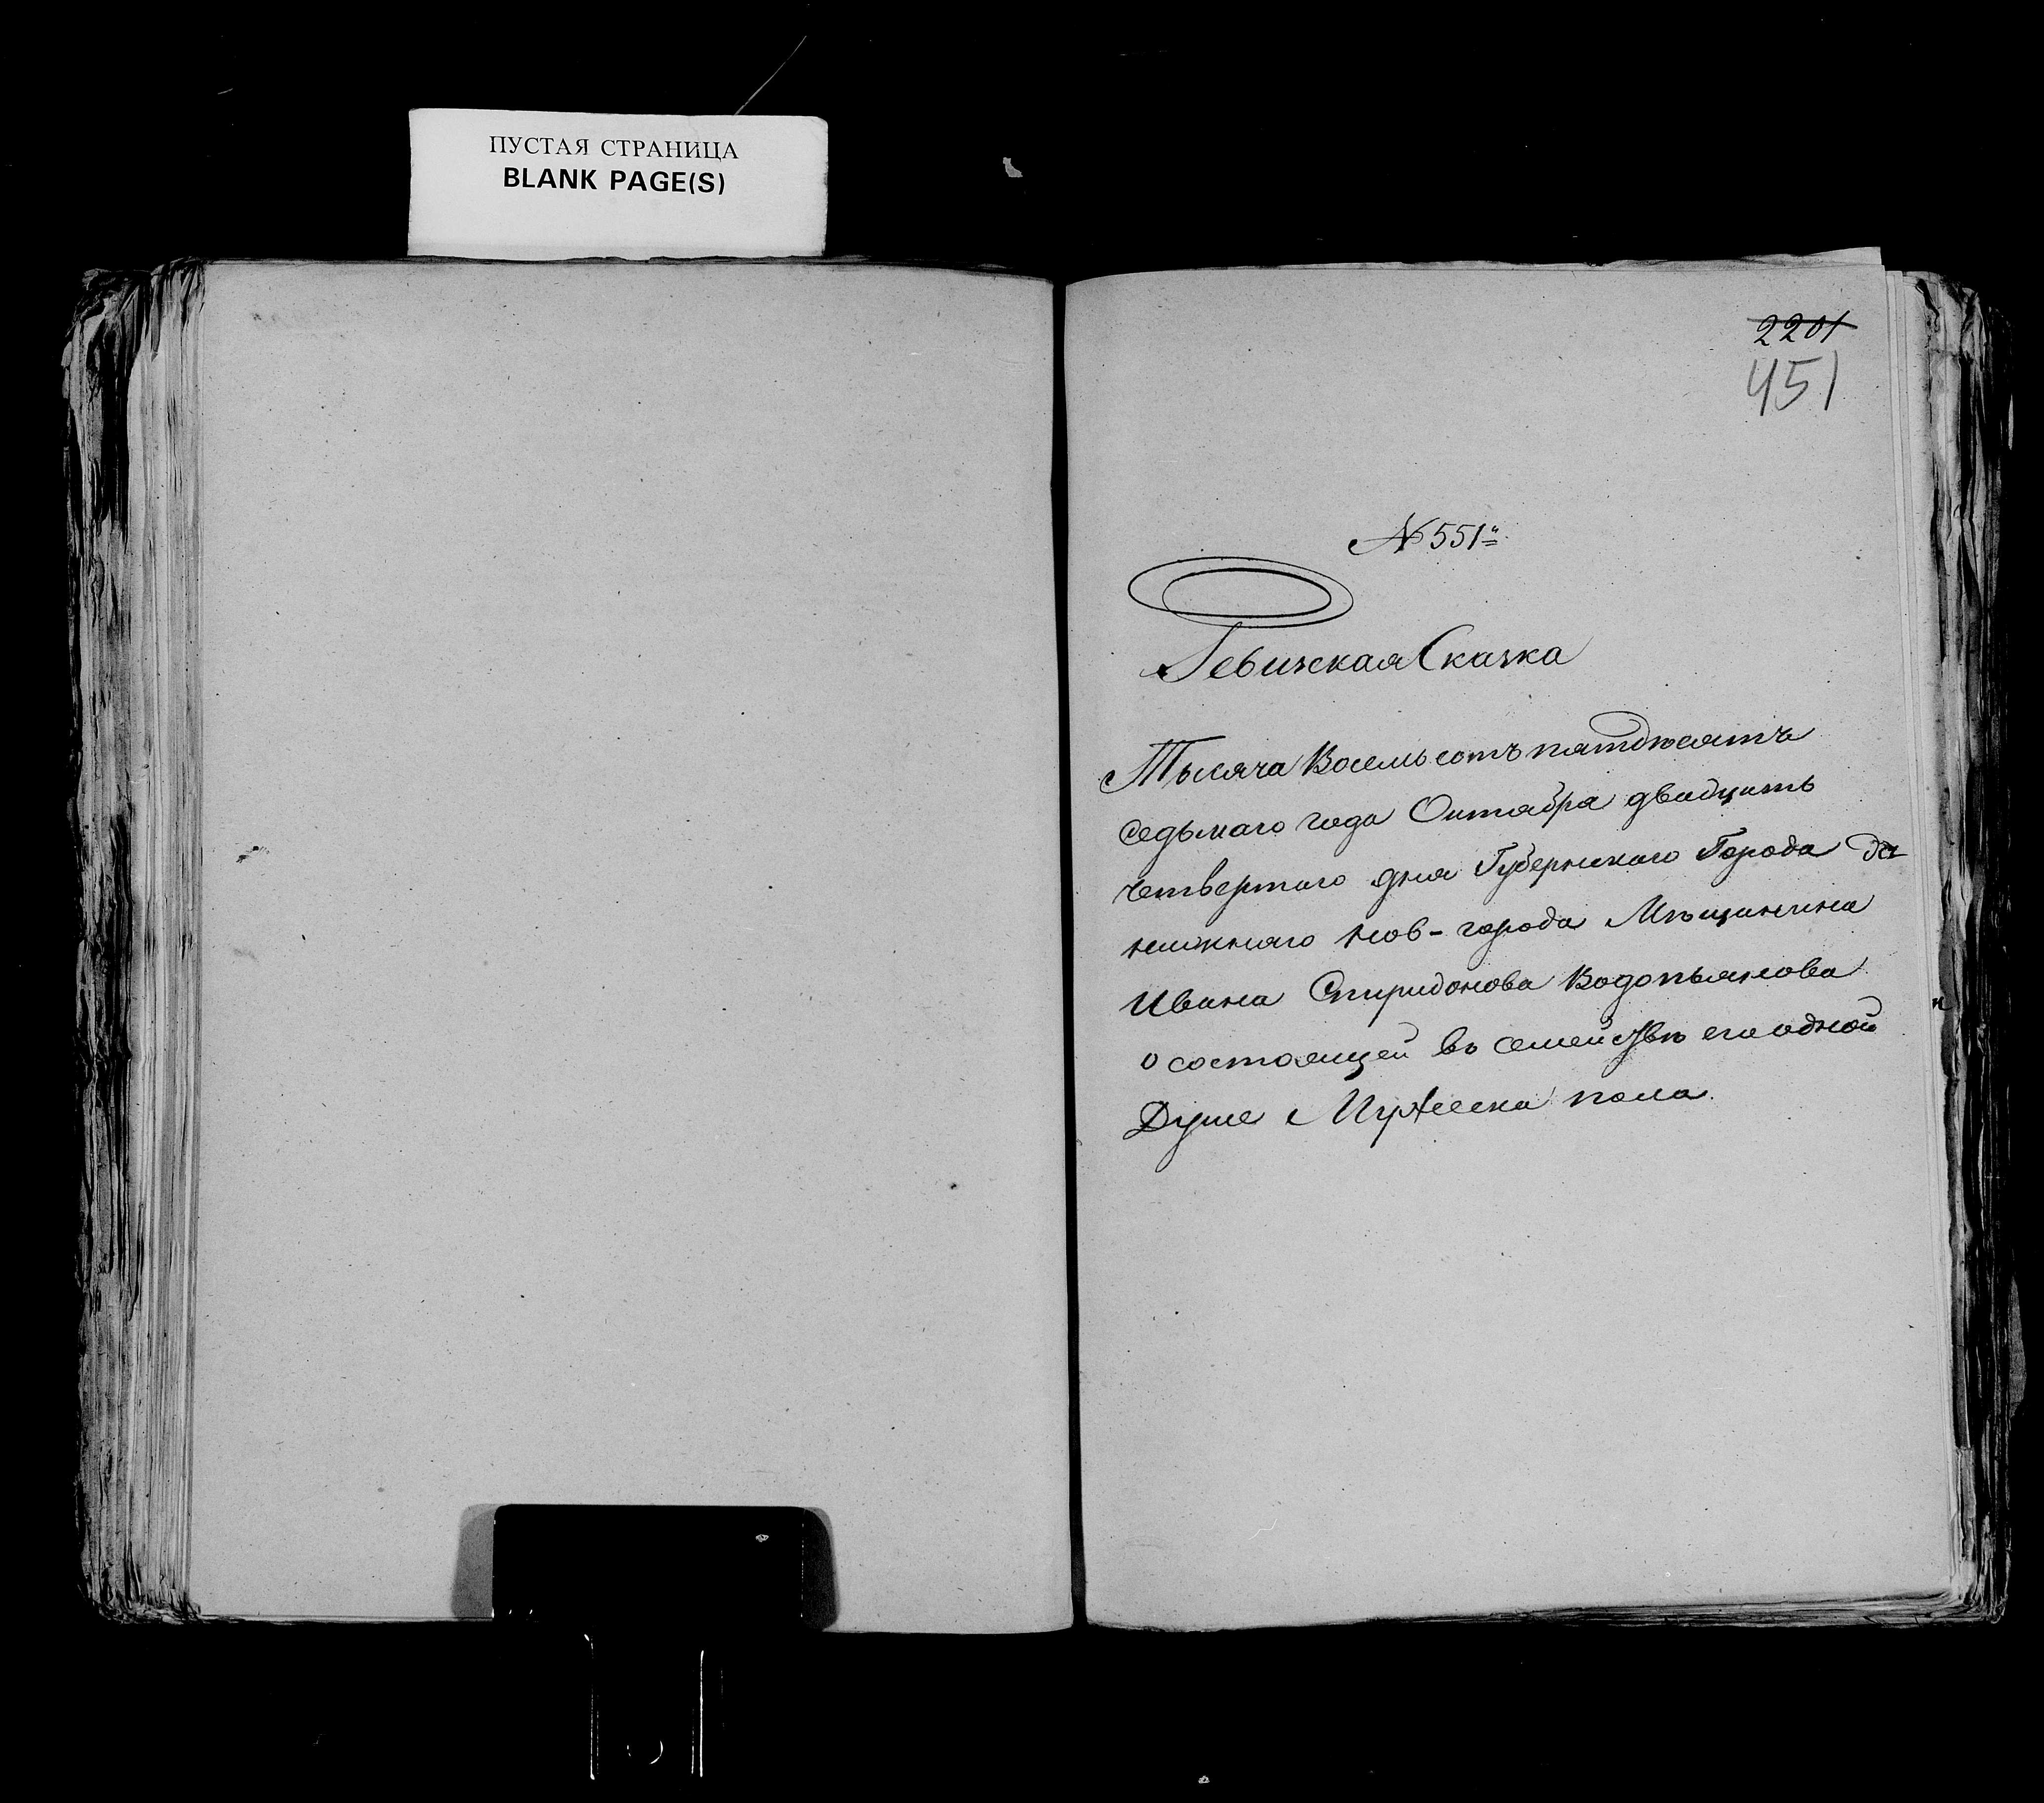 ПУСТАЯ СТРАНИЦА
BLANK PAGE(S)
2201
451
№ 551й
Ревижская Сказка
Тысяча Восемьсотъ пятдесятъ
седьмаго года Октября двадцать
четвертаго дня Губернскаго Города
нижняго Нов-города Мѣщанина
Ивана Спиридонова Водопьянова
о состоящей въ семействѣ его одной
Душе Мужеска пола.